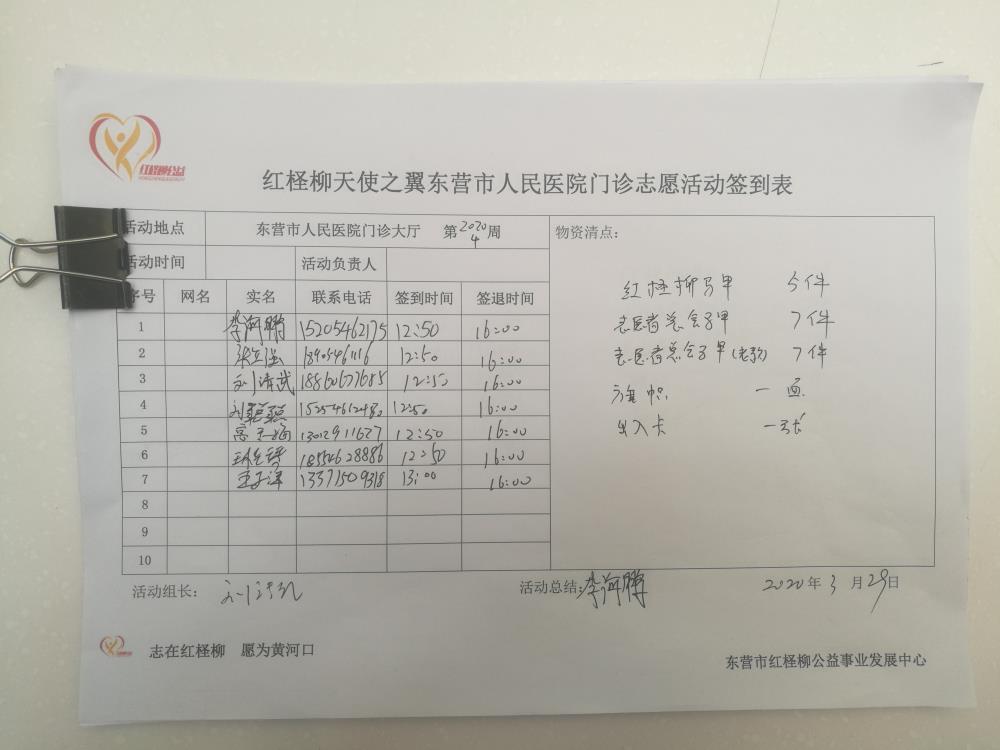 红柽柳公益
红柽柳天使之翼东营市人民医院门诊志愿活动签到表
活动地点 东营市人民医院门诊大厅 第2020 4周 物资清点:
活动时间 活动负责人
序号 网名 实名 联系电话 签到时间 签退时间
红柽柳马甲 5件
志医者总会马甲 7件
志医者总会马甲(老款) 7件
旗帜 一面
出入卡 一张
1 李河鹏 15205462175 12:50 16:00
2 12:50 16:00
3 刘清武 18860677685 12:50 16:00
4 12:50 16:00
5 13012911627 12:50 16:00
6 18554628886 12:50 16:00
7 王子洋 13371509318 13:00 16:00
8
9
10
活动组长: 活动总结:李河鹏 2020年3月29日
志在红柽柳 愿为黄河口
东营市红柽柳公益事业发展中心